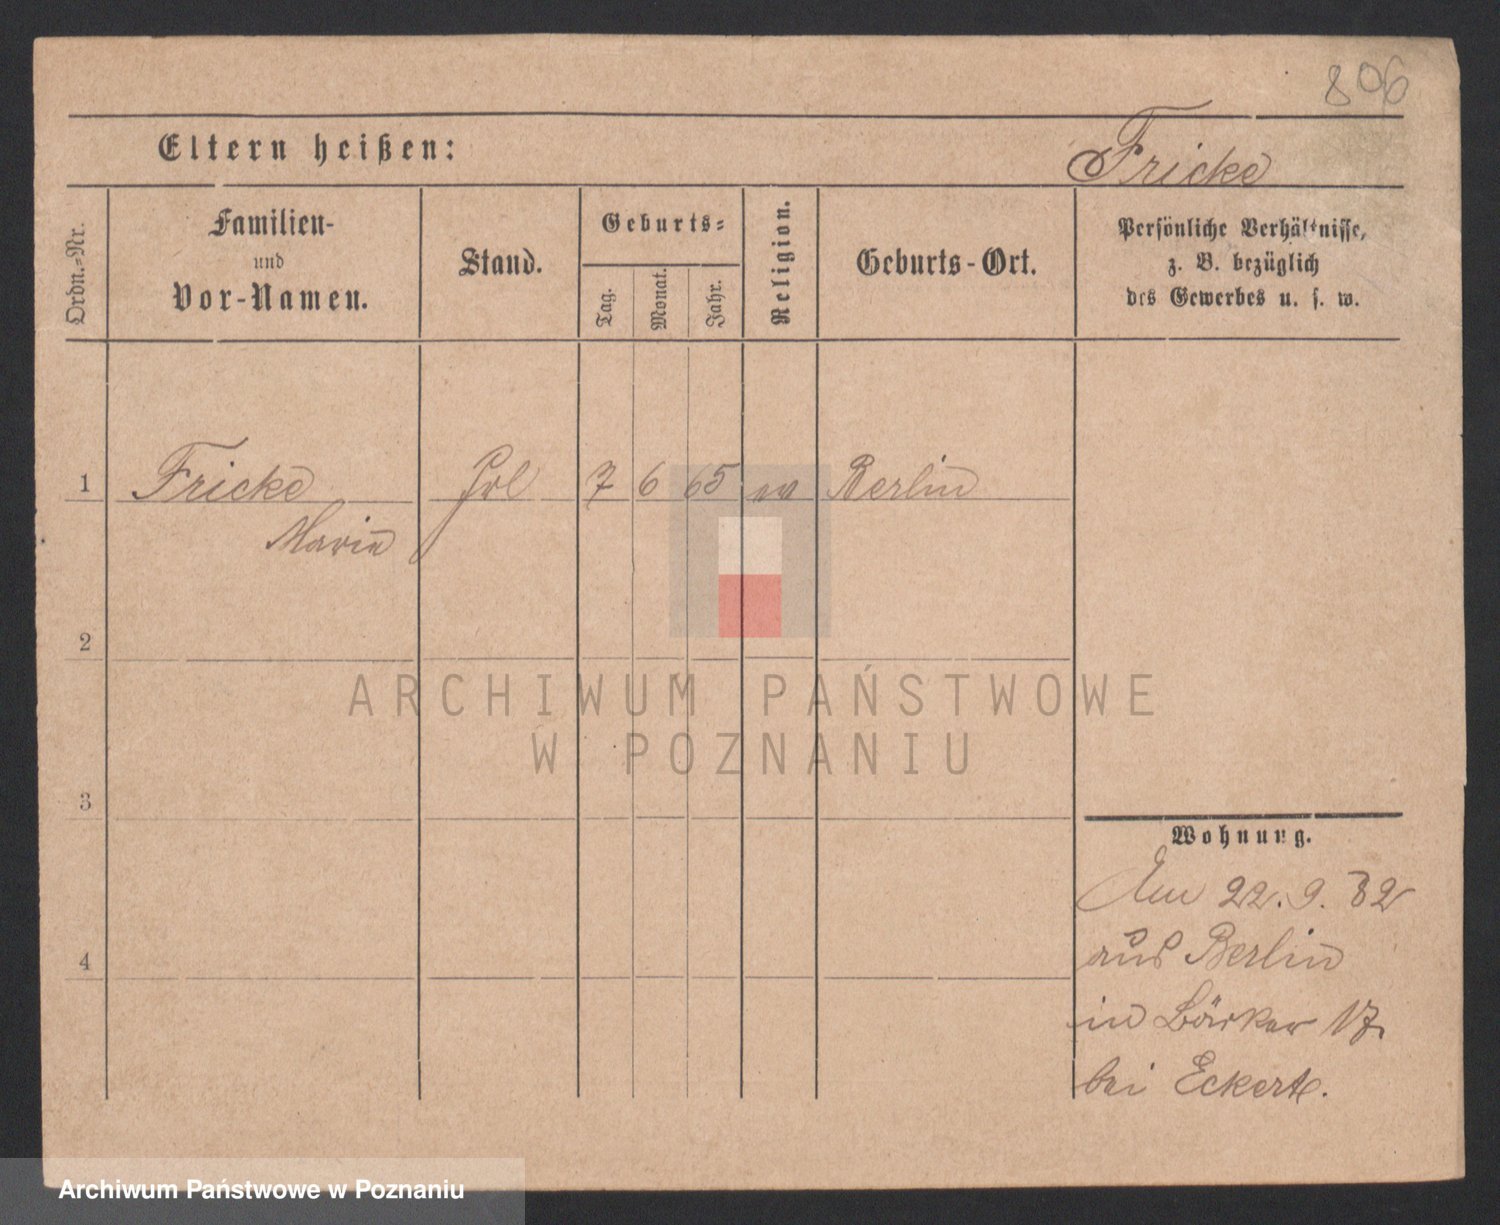 806
Eltern heißen:
Fricke
Ordn.-Nr.
Familien-
und
Vor-Namen.
Stand.
Geburts-
Tag.
Monat.
Jahr.
Religion.
Geburts-Ort.
Persönliche Verhältnisse,
z. B. bezüglich
des Gewerbes u. s. w.
1 Fricke Frl 7 6 65 ev Berlin
Marie
2
ARCHIWUM PAŃSTWOWE
W POZNANIU
3
Wohnung.
Am 22. 9. 82
aus Berlin
4
in Bäcker 17.
bei Eckert.
Archiwum Państwowe w Poznaniu